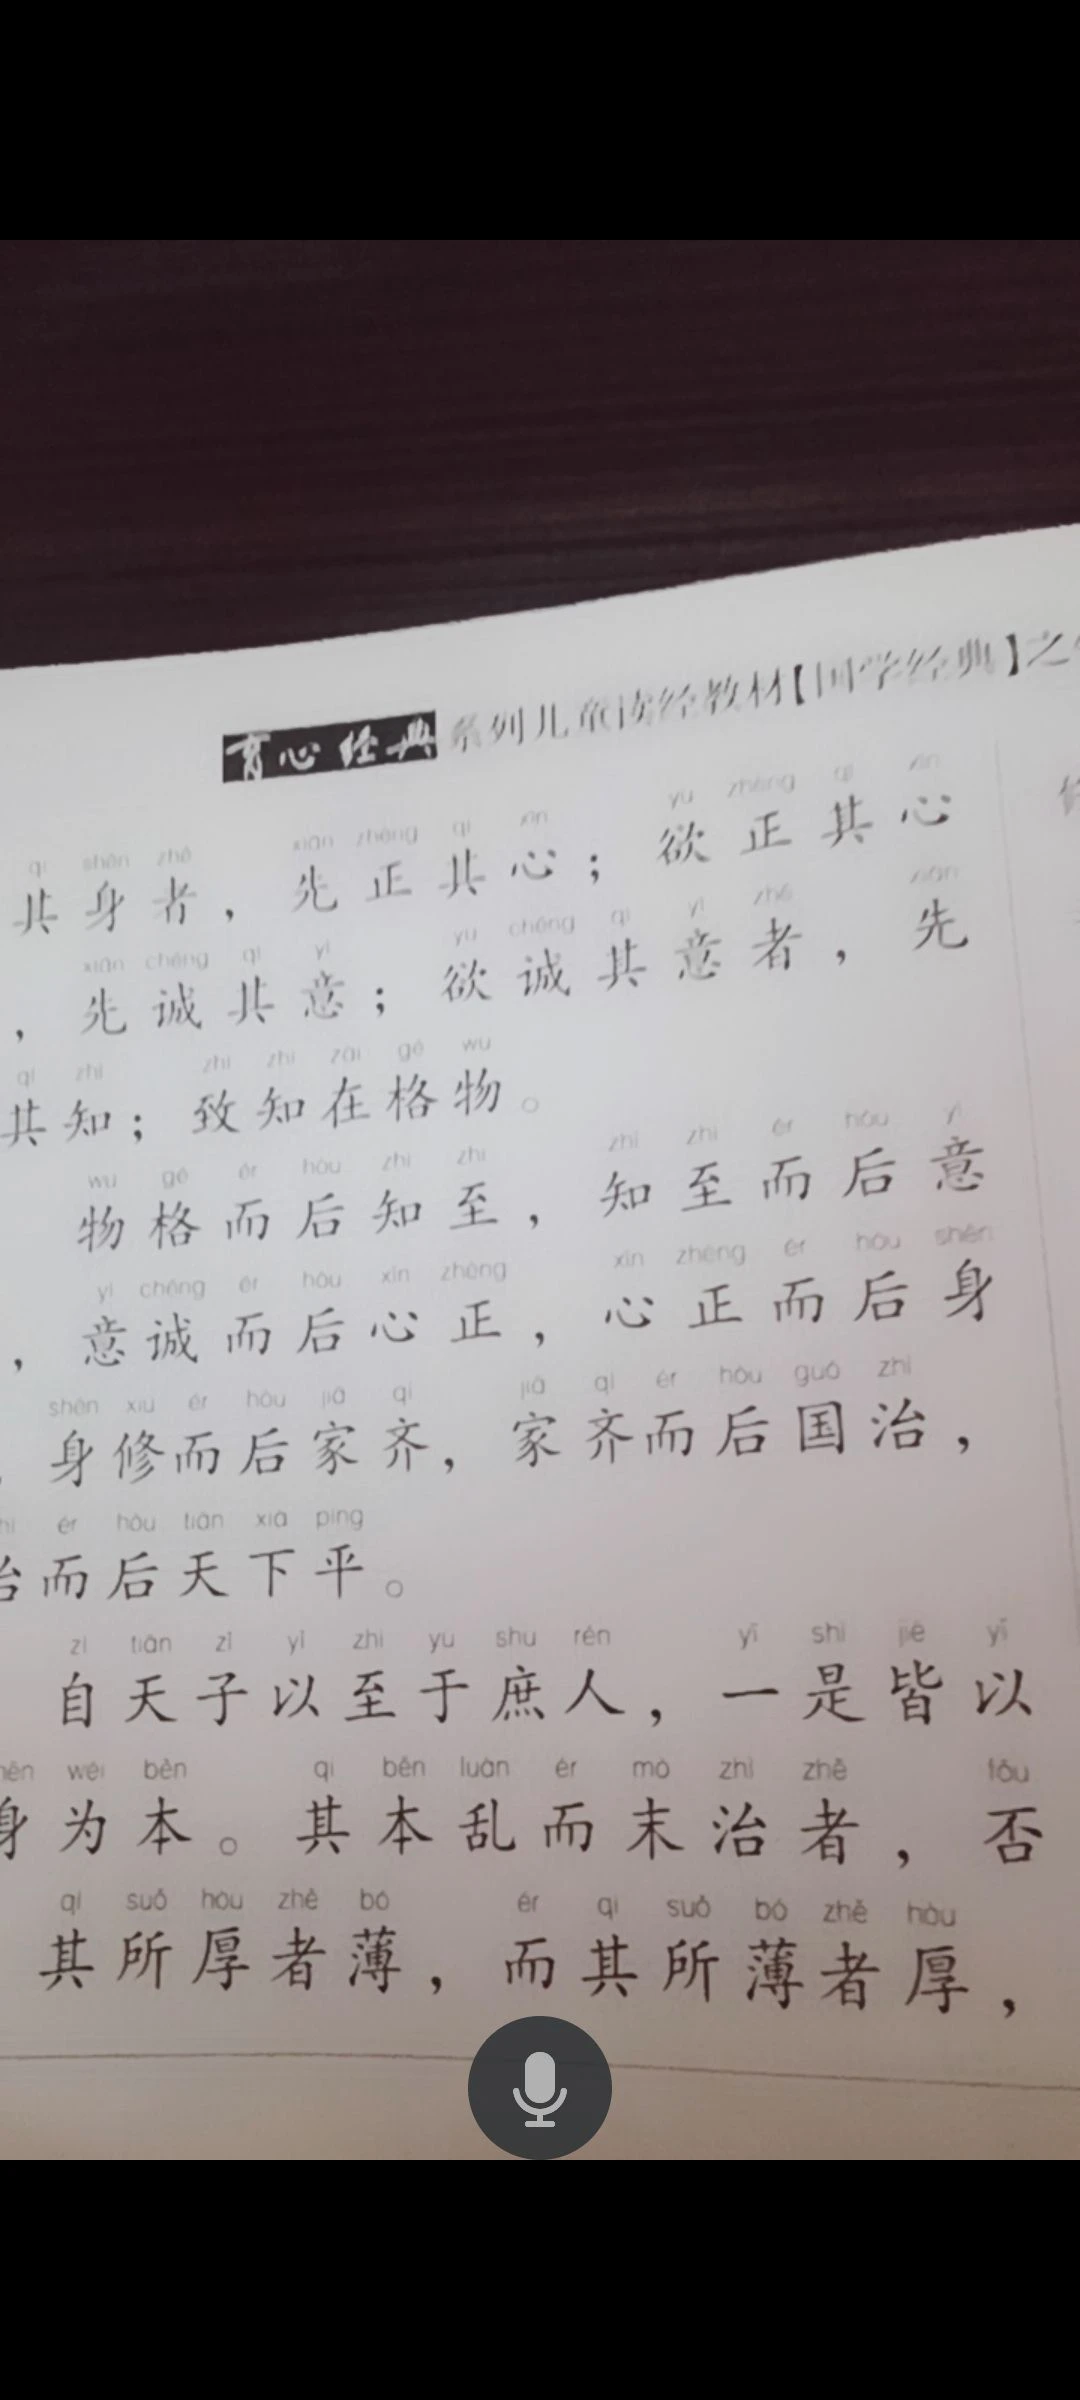 育心经典 系列儿童读经教材【国学经典】之
qí shēn zhě xiān zhèng qí xīn yù zhèng qí xīn
其身者，先正其心；欲正其心
xiān chéng qí yì yù chéng qí yì zhě xiān
，先诚其意；欲诚其意者，先
qí zhī zhì zhī zài gé wù
其知；致知在格物。
wù gé ér hòu zhī zhì zhī zhì ér hòu yì
物格而后知至，知至而后意
yì chéng ér hòu xīn zhèng xīn zhèng ér hòu shēn
，意诚而后心正，心正而后身
shēn xiū ér hòu jiā qí jiā qí ér hòu guó zhì
，身修而后家齐，家齐而后国治，
ér hòu tiān xià píng
治而后天下平。
zì tiān zǐ yǐ zhì yú shù rén yī shì jiē yǐ
自天子以至于庶人，一是皆以
wéi běn qí běn luàn ér mò zhì zhě fǒu
身为本。其本乱而末治者，否
qí suǒ hòu zhě bó ér qí suǒ bó zhě hòu
其所厚者薄，而其所薄者厚，